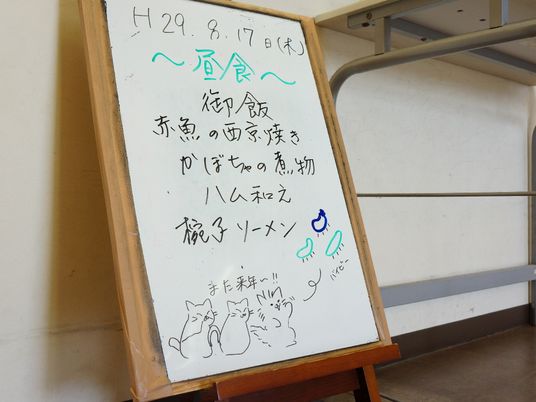 H29.8.17日(木)
～昼食～
御飯
赤魚の西京焼き
かぼちゃの煮物
ハム和え
椀子ソーメン
また来年～!!
バイビー